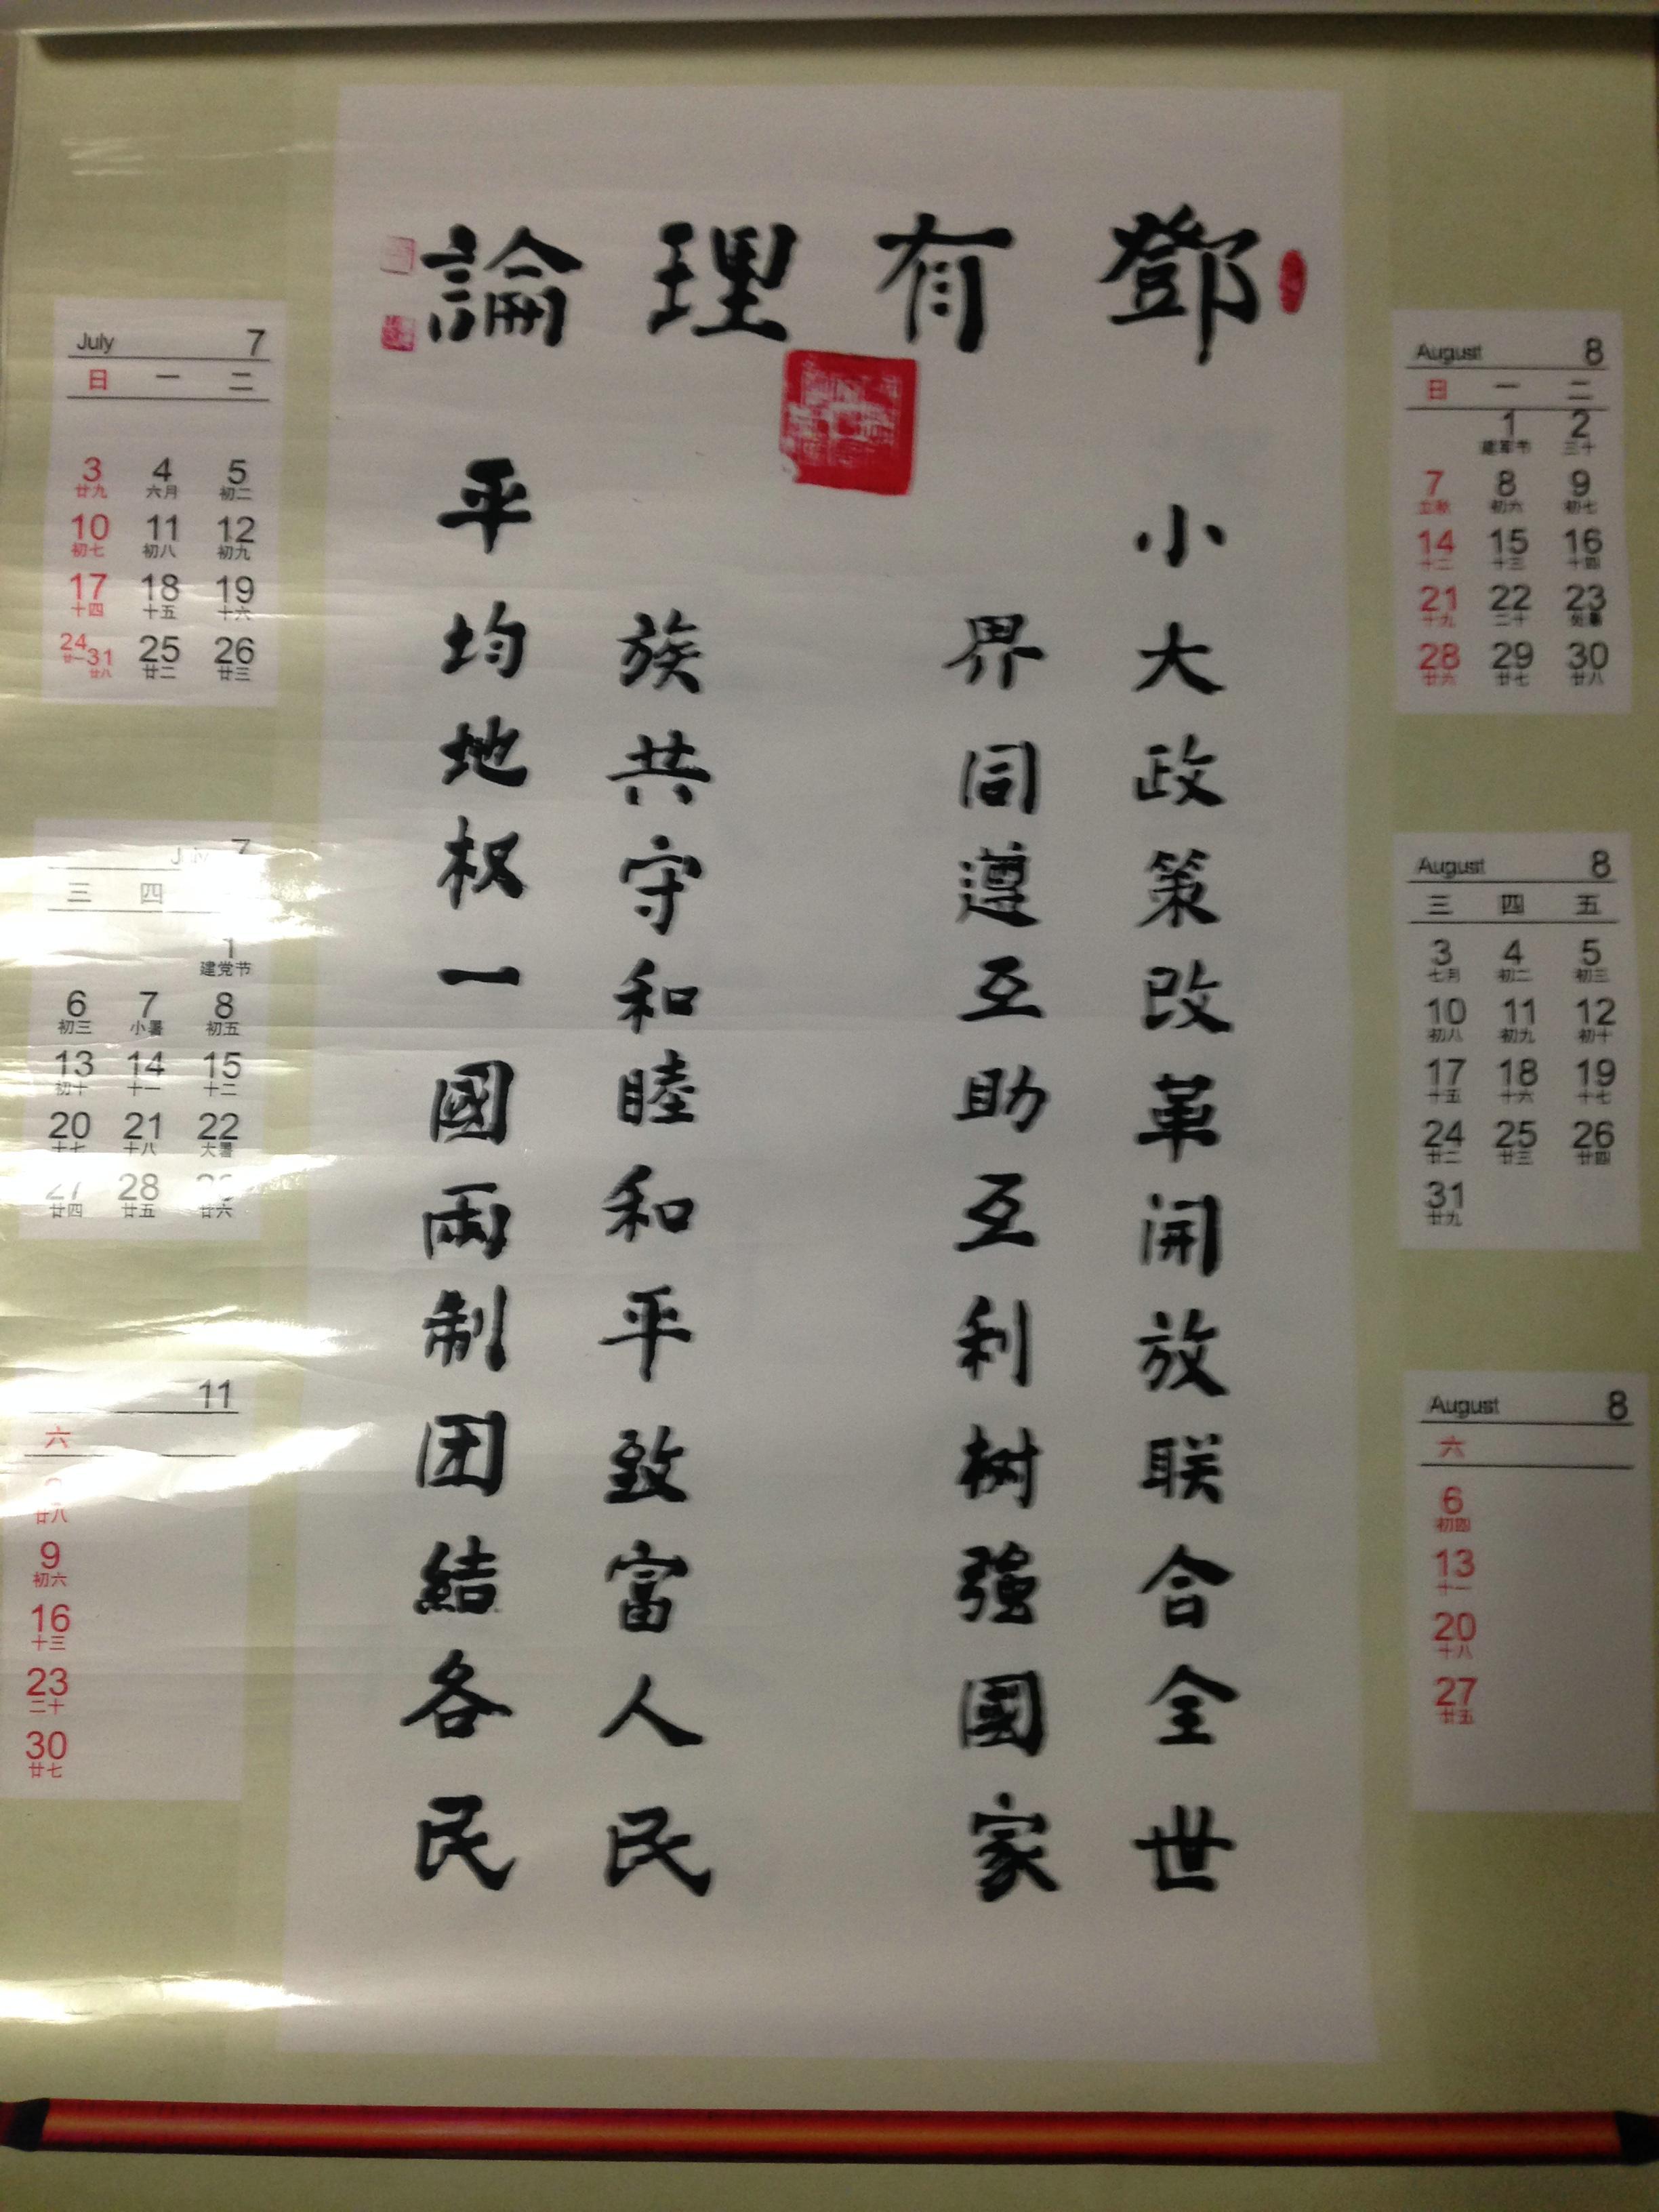 鄧有理論
小大政策改革開放联合全世
界同遵互助互利树強國家
族共守和睦和平致富人民
平均地权一國兩制团結各民
July 7
日 一 二
3 4 5
廿九 六月 初二
10 11 12
初七 初八 初九
17 18 19
十四 十五 十六
24 31 25 26
廿一 廿八 廿二 廿三
July 7
三 四
1
建党节
6 7 8
初三 小暑 初五
13 14 15
初十 十一 十二
20 21 22
十七 十八 大暑
27 28
廿四 廿五 廿六
11
六
廿八
9
初六
16
十三
23
二十
30
廿七
August 8
日 一 二
1 2
建军节 三十
7 8 9
立秋 初六 初七
14 15 16
十二 十三 十四
21 22 23
十九 二十 处暑
28 29 30
廿六 廿七 廿八
August 8
三 四 五
3 4 5
七月 初二 初三
10 11 12
初八 初九 初十
17 18 19
十五 十六 十七
24 25 26
廿二 廿三 廿四
31
廿九
August 8
六
6
初四
13
十一
20
十八
27
廿五